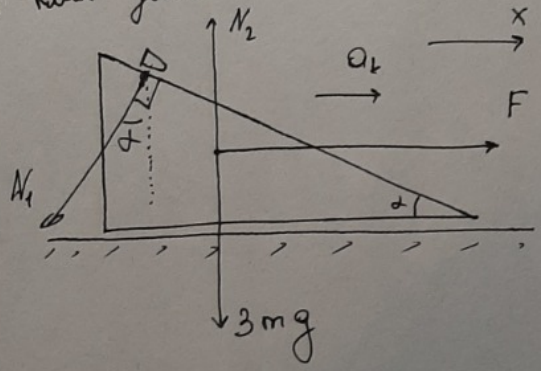 N₂
x
aₖ
F
α
N₁
α
3mg